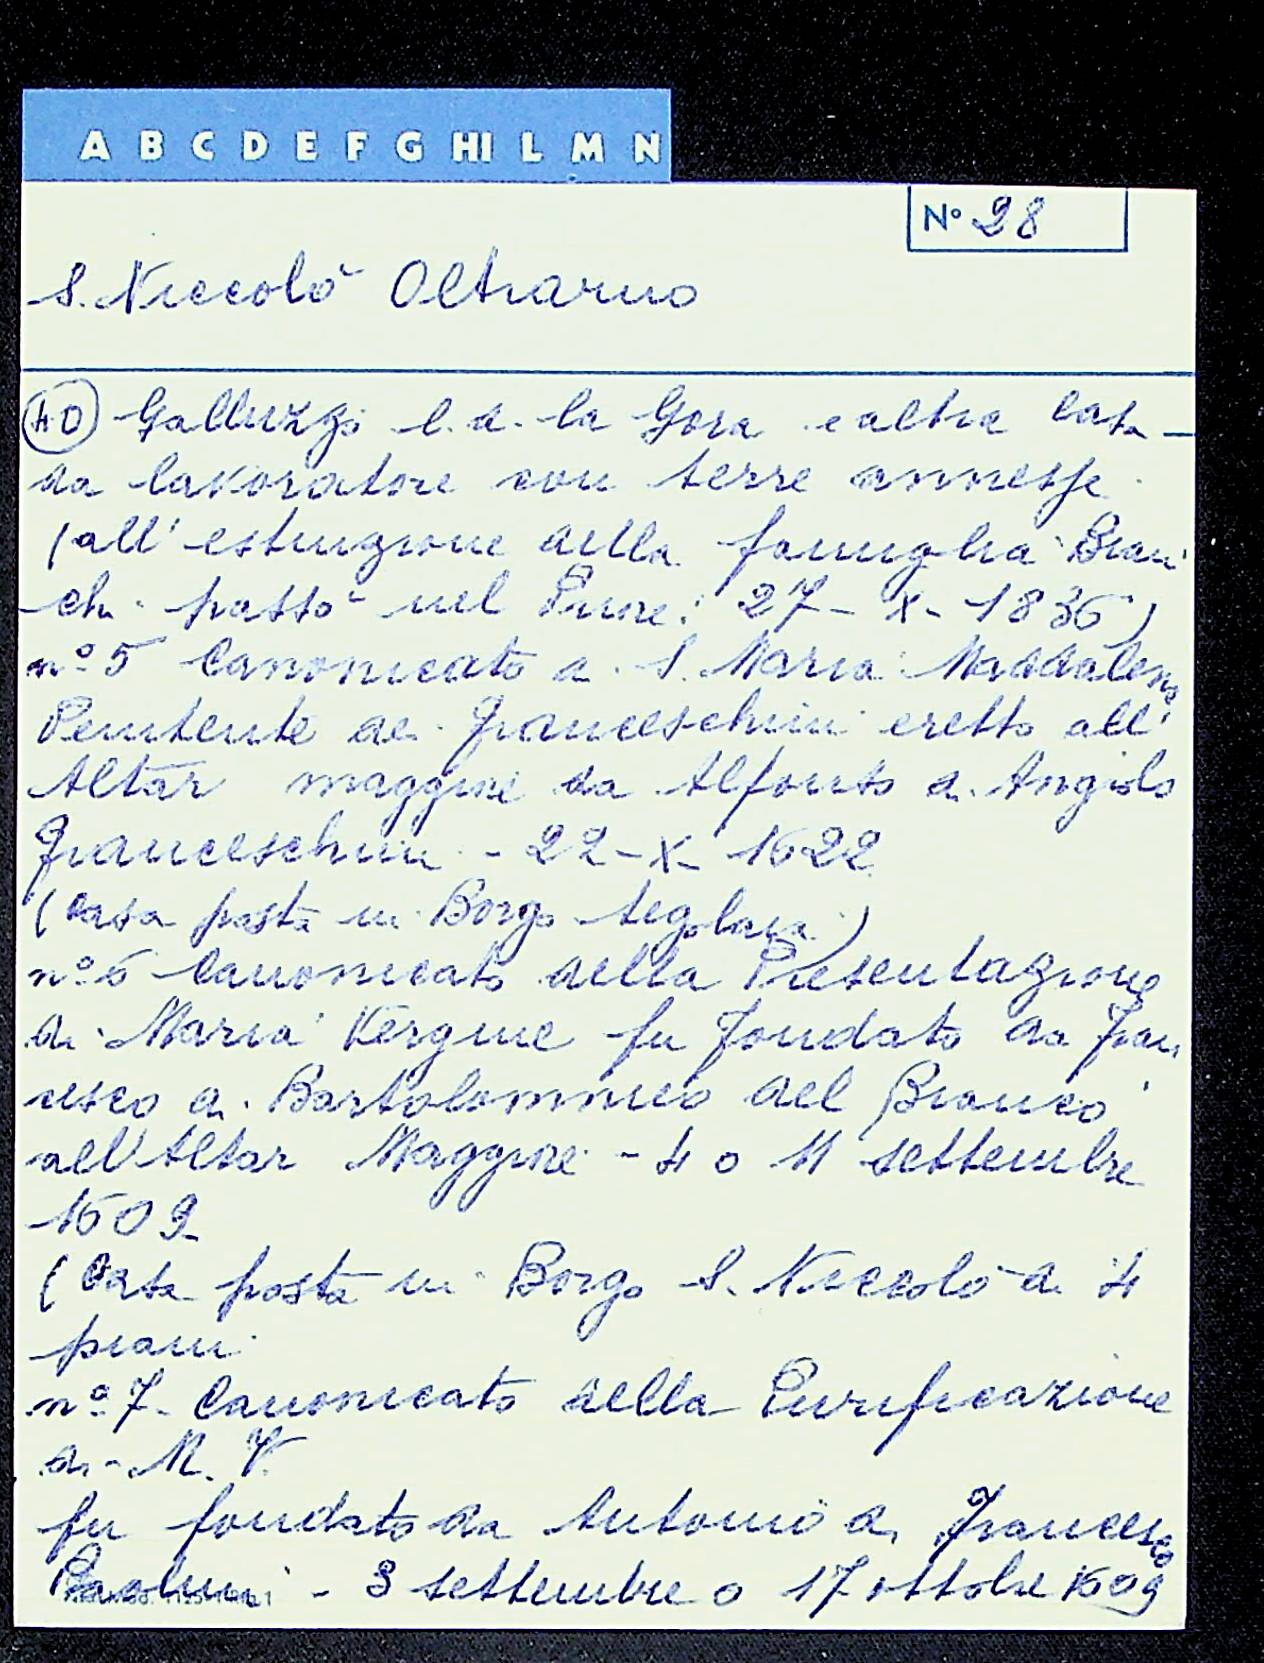 A B C D E F G HI L M N
N° 28
S. Niccolò Oltrarno
(40) Galluzzo l. d. la Gora e altra casa
da lavoratore con terre annesse
(all'estinzione della famiglia Bian
chi passò nel Priore: 27 - X - 1836)
n° 5 Canonicato di S. Maria Maddalena
Penitente de Franceschini eretto all'
Altar maggiore da Alfonso di Angiolo
Franceschini - 22 - X - 1622
(Casa posta in Borgo tegolaia)
n° 6 Canonicato della Presentazione
di Maria Vergine fu fondato da Fran
cesco di Bartolommeo del Bianco
all'Altar Maggiore - 4 o 11 settembre
1609
(Casa posta in Borgo S. Niccolò a 4
piani
n° 7 - Canonicato della Purificazione
di - M. V.
fu fondato da Antonio di Francesco
Paolini - 3 settembre o 17 ottobre 1609